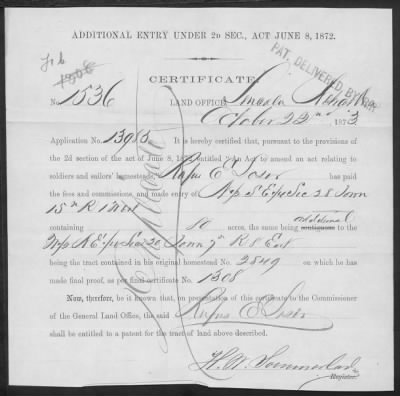 ADDITIONAL ENTRY UNDER 2D SEC., ACT JUNE 8, 1872.
PAT. DELIVERED BY
1306
CERTIFICATE
No. 1536
LAND OFFICE, Lincoln
October 22nd 1873
Application No. 13983. It is hereby certified, that pursuant to the provisions of
the 2d section of the act of June 8, 1872, entitled "An Act to amend an act relating to
soldiers and sailors' homesteads," Rufus E. has paid
the fees and commissions, and made entry of S E ¼ Sec 28 Town
15 n R 1 West
additional
containing 80 acres, the same being contiguous to the
N E ¼ Sec 20 Town 7n R 8 East
being the tract contained in his original homestead No. 2849 on which he has
made final proof, as per final certificate No. 1308
Now, therefore, be it known, that on presentation of this certificate to the Commissioner
of the General Land Office, the said Rufus E.
shall be entitled to a patent for the tract of land above described.
Register.